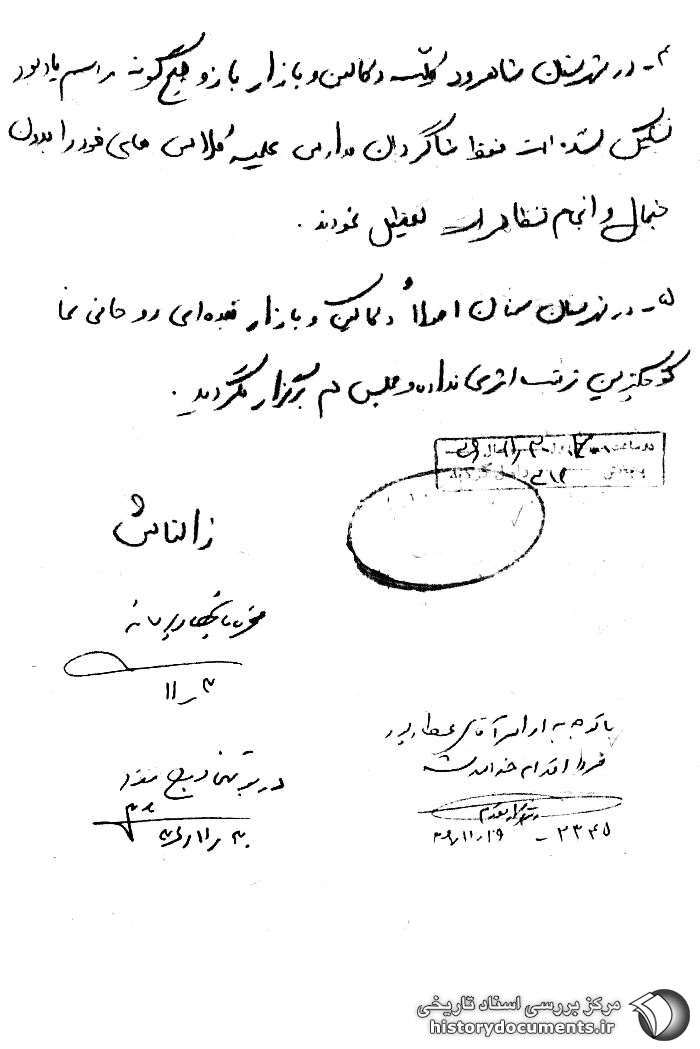 ۴- در شهرستان شاهرود کلیه دکاکین و بازار باز و هیچگونه مراسم یادبود
تشکیل نشده است فقط شاگردان مدارس علمیه کلاس های خود را بدون
جنجال و انجام تظاهرات تعطیل نمودند.
۵- در شهرستان سمنان اصولاً دکاکین و بازار عده‌ای روحانی نما
کوچکترین ترتیب اثری نداده و مجلس هم برگزار نگردید.
زالتاش
۳ر۱۱
با توجه به اوامر آقای عطارپور
فردا اقدام خواهد شد
در بولتن درج شود
۲۳۴۵ -
مرکز بررسی اسناد تاریخی
historydocuments.ir